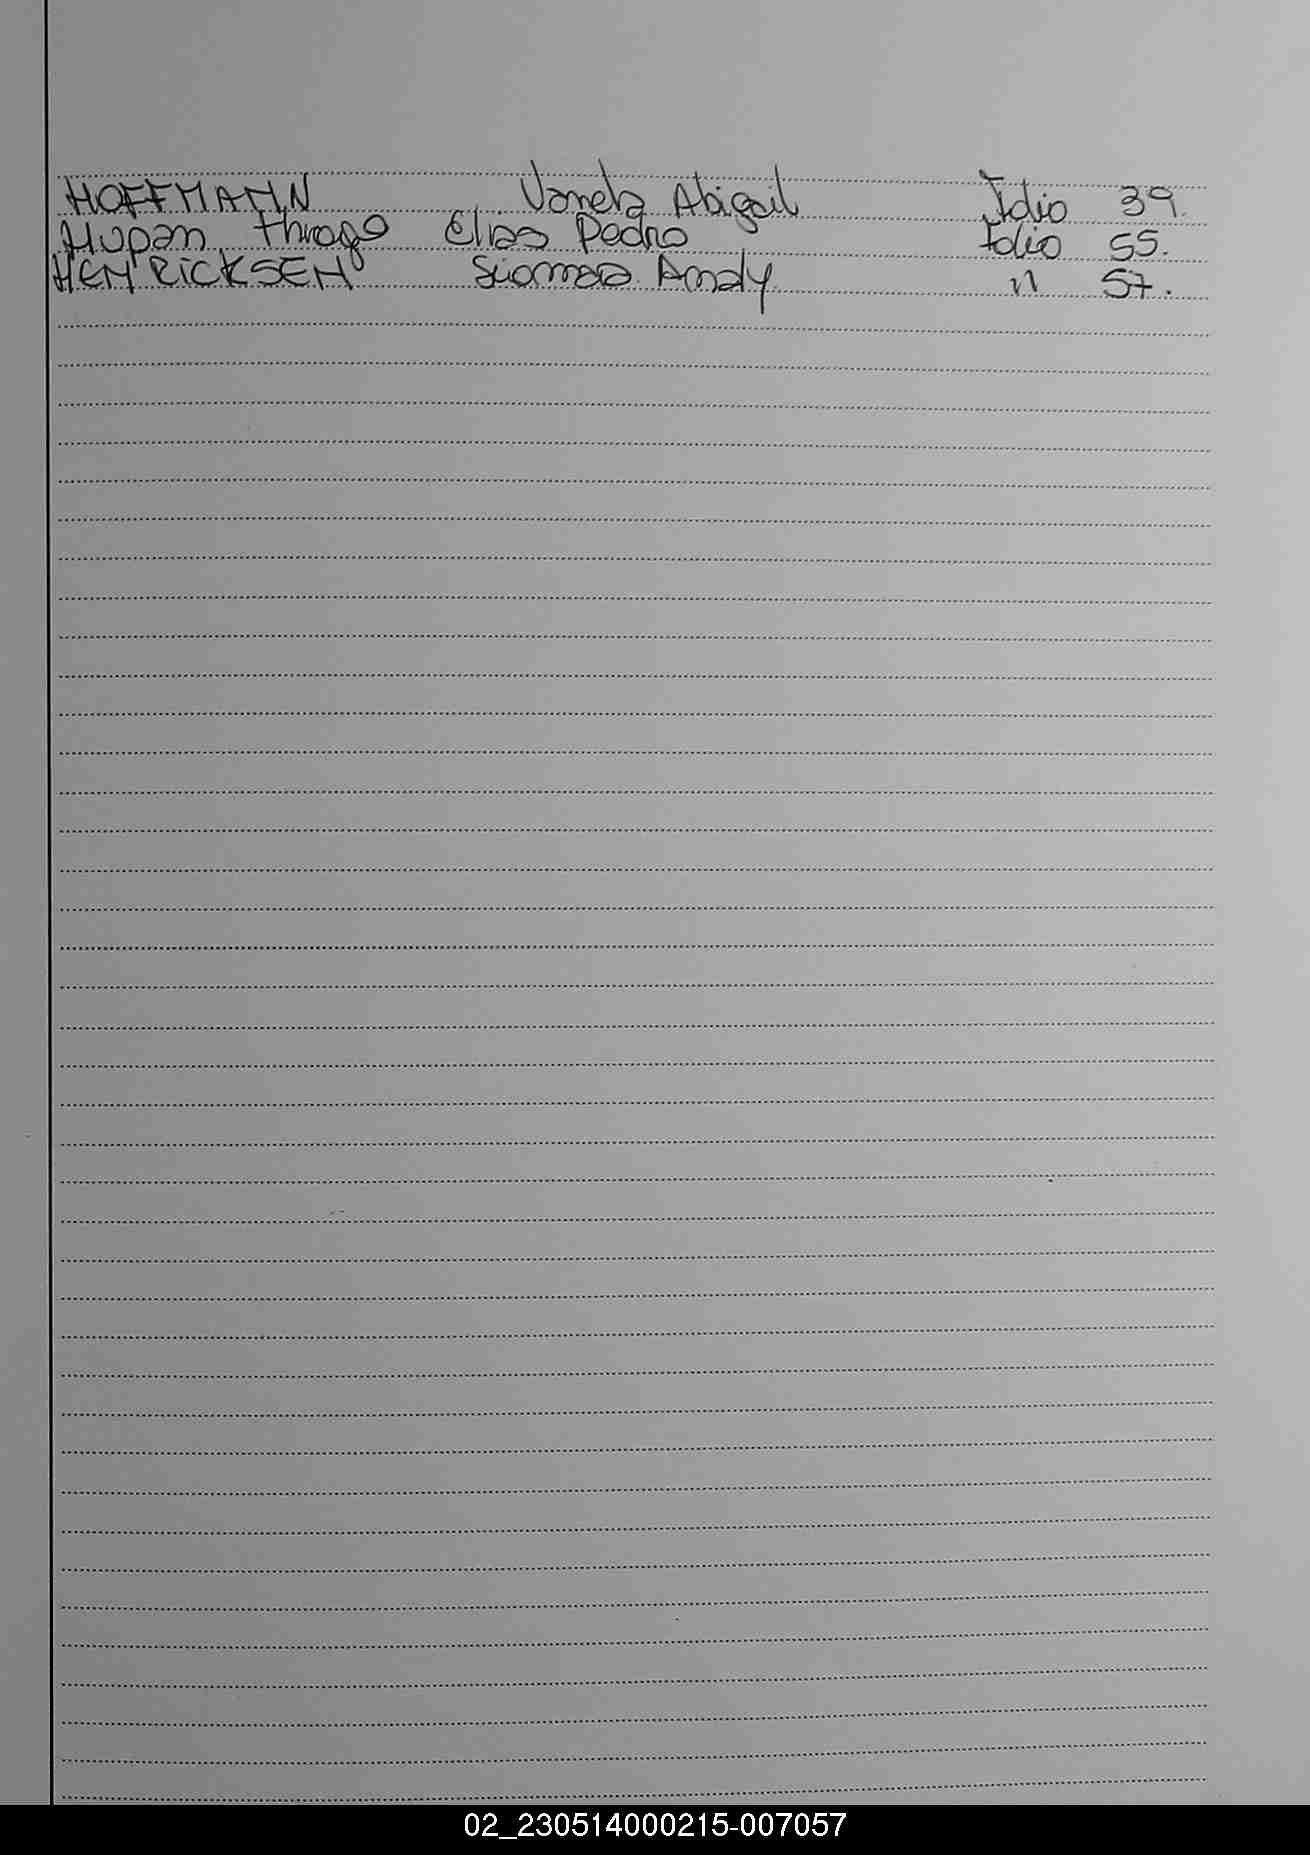 HOFFMANN Vanela Abigail Idio 39.
Hupan, thiago Elias Pedro Idio 55.
HENRICKSEN Andy " 57.
02_230514000215-007057